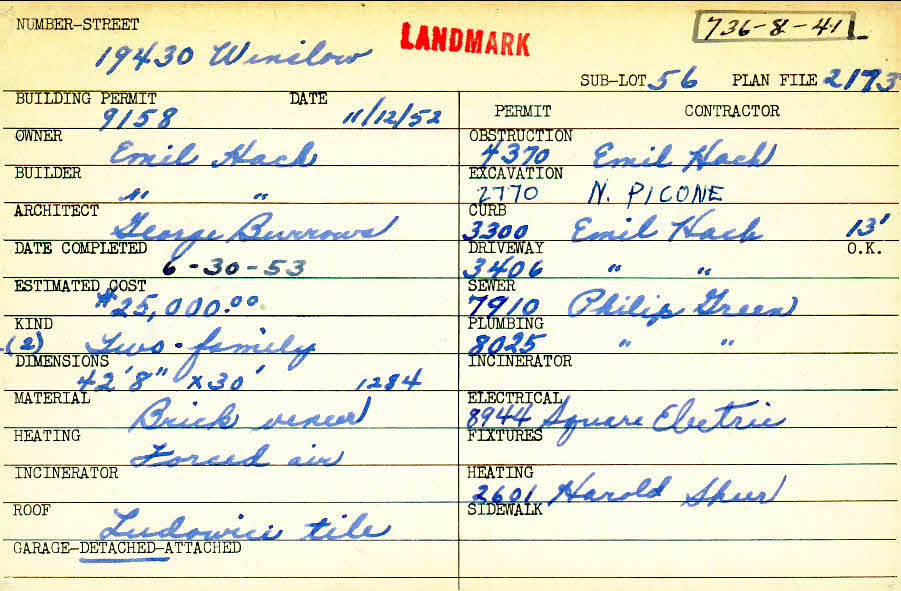 NUMBER-STREET
19430 Winslow
LANDMARK
736-8-41
SUB-LOT 56 PLAN FILE 2173
BUILDING PERMIT DATE
9158 11/12/52
OWNER
Emil Hach
BUILDER
" "
ARCHITECT
George Burrows
DATE COMPLETED
6-30-53
ESTIMATED COST
$25,000.00
KIND
(2) Two-family
DIMENSIONS
42'8" x 30' 1284
MATERIAL
Brick veneer
HEATING
Forced air
INCINERATOR
ROOF
Ludowici tile
GARAGE-DETACHED-ATTACHED
PERMIT CONTRACTOR
OBSTRUCTION
4370 Emil Hach
EXCAVATION
2770 N. PICONE
CURB
3300 Emil Hach 13'
DRIVEWAY O.K.
3406 " "
SEWER
7910 Philip Green
PLUMBING
8025 " "
INCINERATOR
ELECTRICAL
8944 Square Electric
FIXTURES
HEATING
2601 Harold Sheer
SIDEWALK